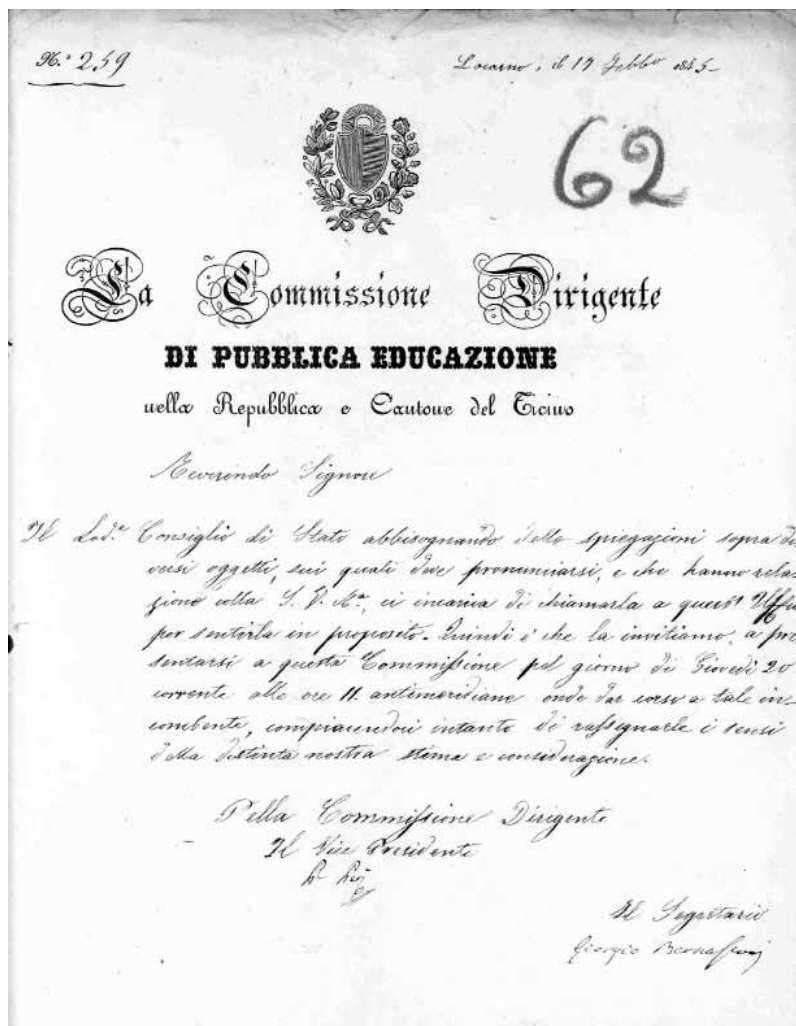 N.º 259
Locarno, il 17 Febb.º 1845-
62
La Commissione Dirigente
DI PUBBLICA EDUCAZIONE
nella Repubblica e Cantone del Ticino
Reverendo Signore
Il Lod.º Consiglio di Stato abbisognando delle spiegazioni sopra di
versi oggetti, sui quali deve pronunciarsi, e che hanno rela
zione colla S. V. ci incarica di chiamarla a quest' Uffi
per sentirla in proposito. Quindi è che la invitiamo a pre
sentarsi a questa Commissione pel giorno di Giovedì 20
corrente alle ore 11. antimeridiane onde dar corso a tale in-
combente, compiacendoci intanto di rassegnarle i sensi
della distinta nostra stima e considerazione.
Pella Commissione Dirigente
Il Vice Presidente
Il Segretario
Giorgio Bernasconi